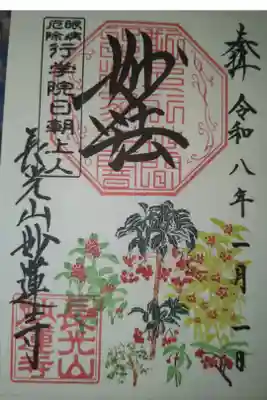 奉拝 令和八年一月一日
妙法
眼病
厄除
行学院日朝上人
長光山妙蓮寺
長光山
妙蓮寺